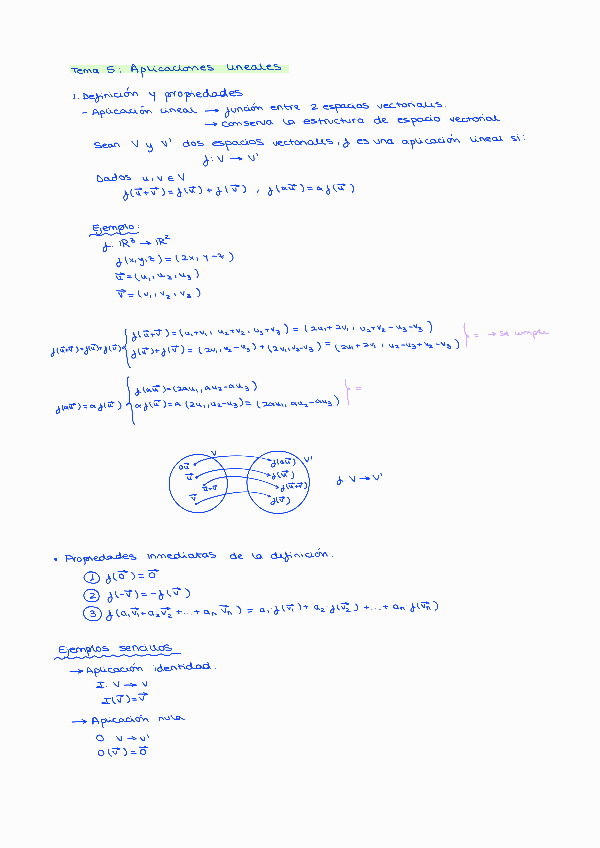 Tema 5: Aplicaciones lineales
1. Definición y propiedades
- Aplicación lineal → función entre 2 espacios vectoriales.
→ conserva la estructura de espacio vectorial
Sean V y V' dos espacios vectoriales, f es una aplicación lineal si:
f: V → V'
Dados u, v ∈ V
f(u⃗+v⃗) = f(u⃗) + f(v⃗) , f(au⃗) = a f(u⃗)
Ejemplo:
f: ℝ³ → ℝ²
f(x,y,z) = (2x, y-z)
u⃗ = (u₁, u₂, u₃)
v⃗ = (v₁, v₂, v₃)
f(u⃗+v⃗) = (u₁+v₁, u₂+v₂, u₃+v₃) = (2u₁+2v₁, u₂+v₂-u₃-v₃)
f(u⃗+v⃗)=f(u⃗)+f(v⃗) { } = → se cumple
f(u⃗)+f(v⃗) = (2u₁, u₂-u₃) + (2v₁, v₂-v₃) = (2u₁+2v₁, u₂-u₃+v₂-v₃)
f(au⃗) = (2au₁, au₂-au₃)
f(au⃗) = a f(u⃗) { } =
a f(u⃗) = a (2u₁, u₂-u₃) = (2au₁, au₂-au₃)
V V'
au⃗ f(au⃗)
u⃗ f(u⃗)
u⃗+v⃗ f(u⃗+v⃗)
v⃗ f(v⃗)
f: V → V'
• Propiedades inmediatas de la definición.
① f(0⃗) = 0⃗
② f(-v⃗) = -f(v⃗)
③ f(a₁v⃗₁+a₂v⃗₂+...+aₙv⃗ₙ) = a₁f(v⃗₁) + a₂f(v⃗₂) + ... + aₙf(v⃗ₙ)
Ejemplos sencillos
→ Aplicación identidad.
I: V → V
I(v⃗) = v⃗
→ Aplicación nula
O V → V'
O(v⃗) = 0⃗